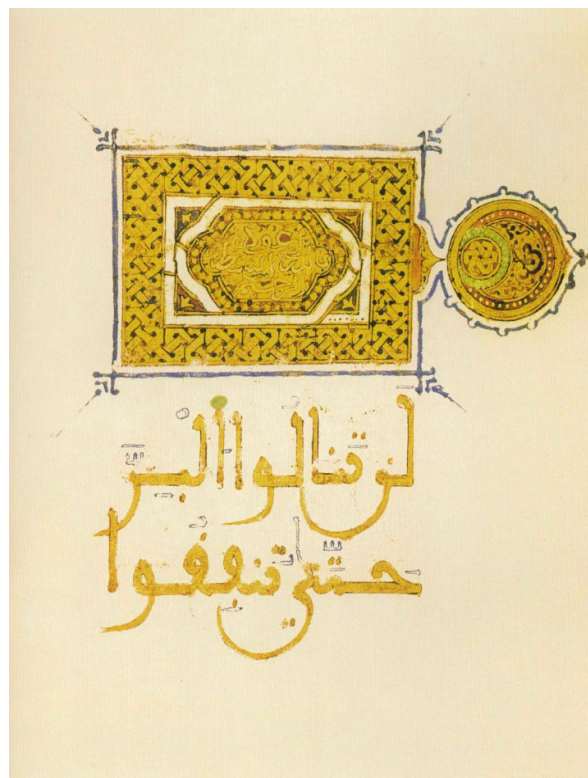 لن تنالوا البر
حتى تنفقوا